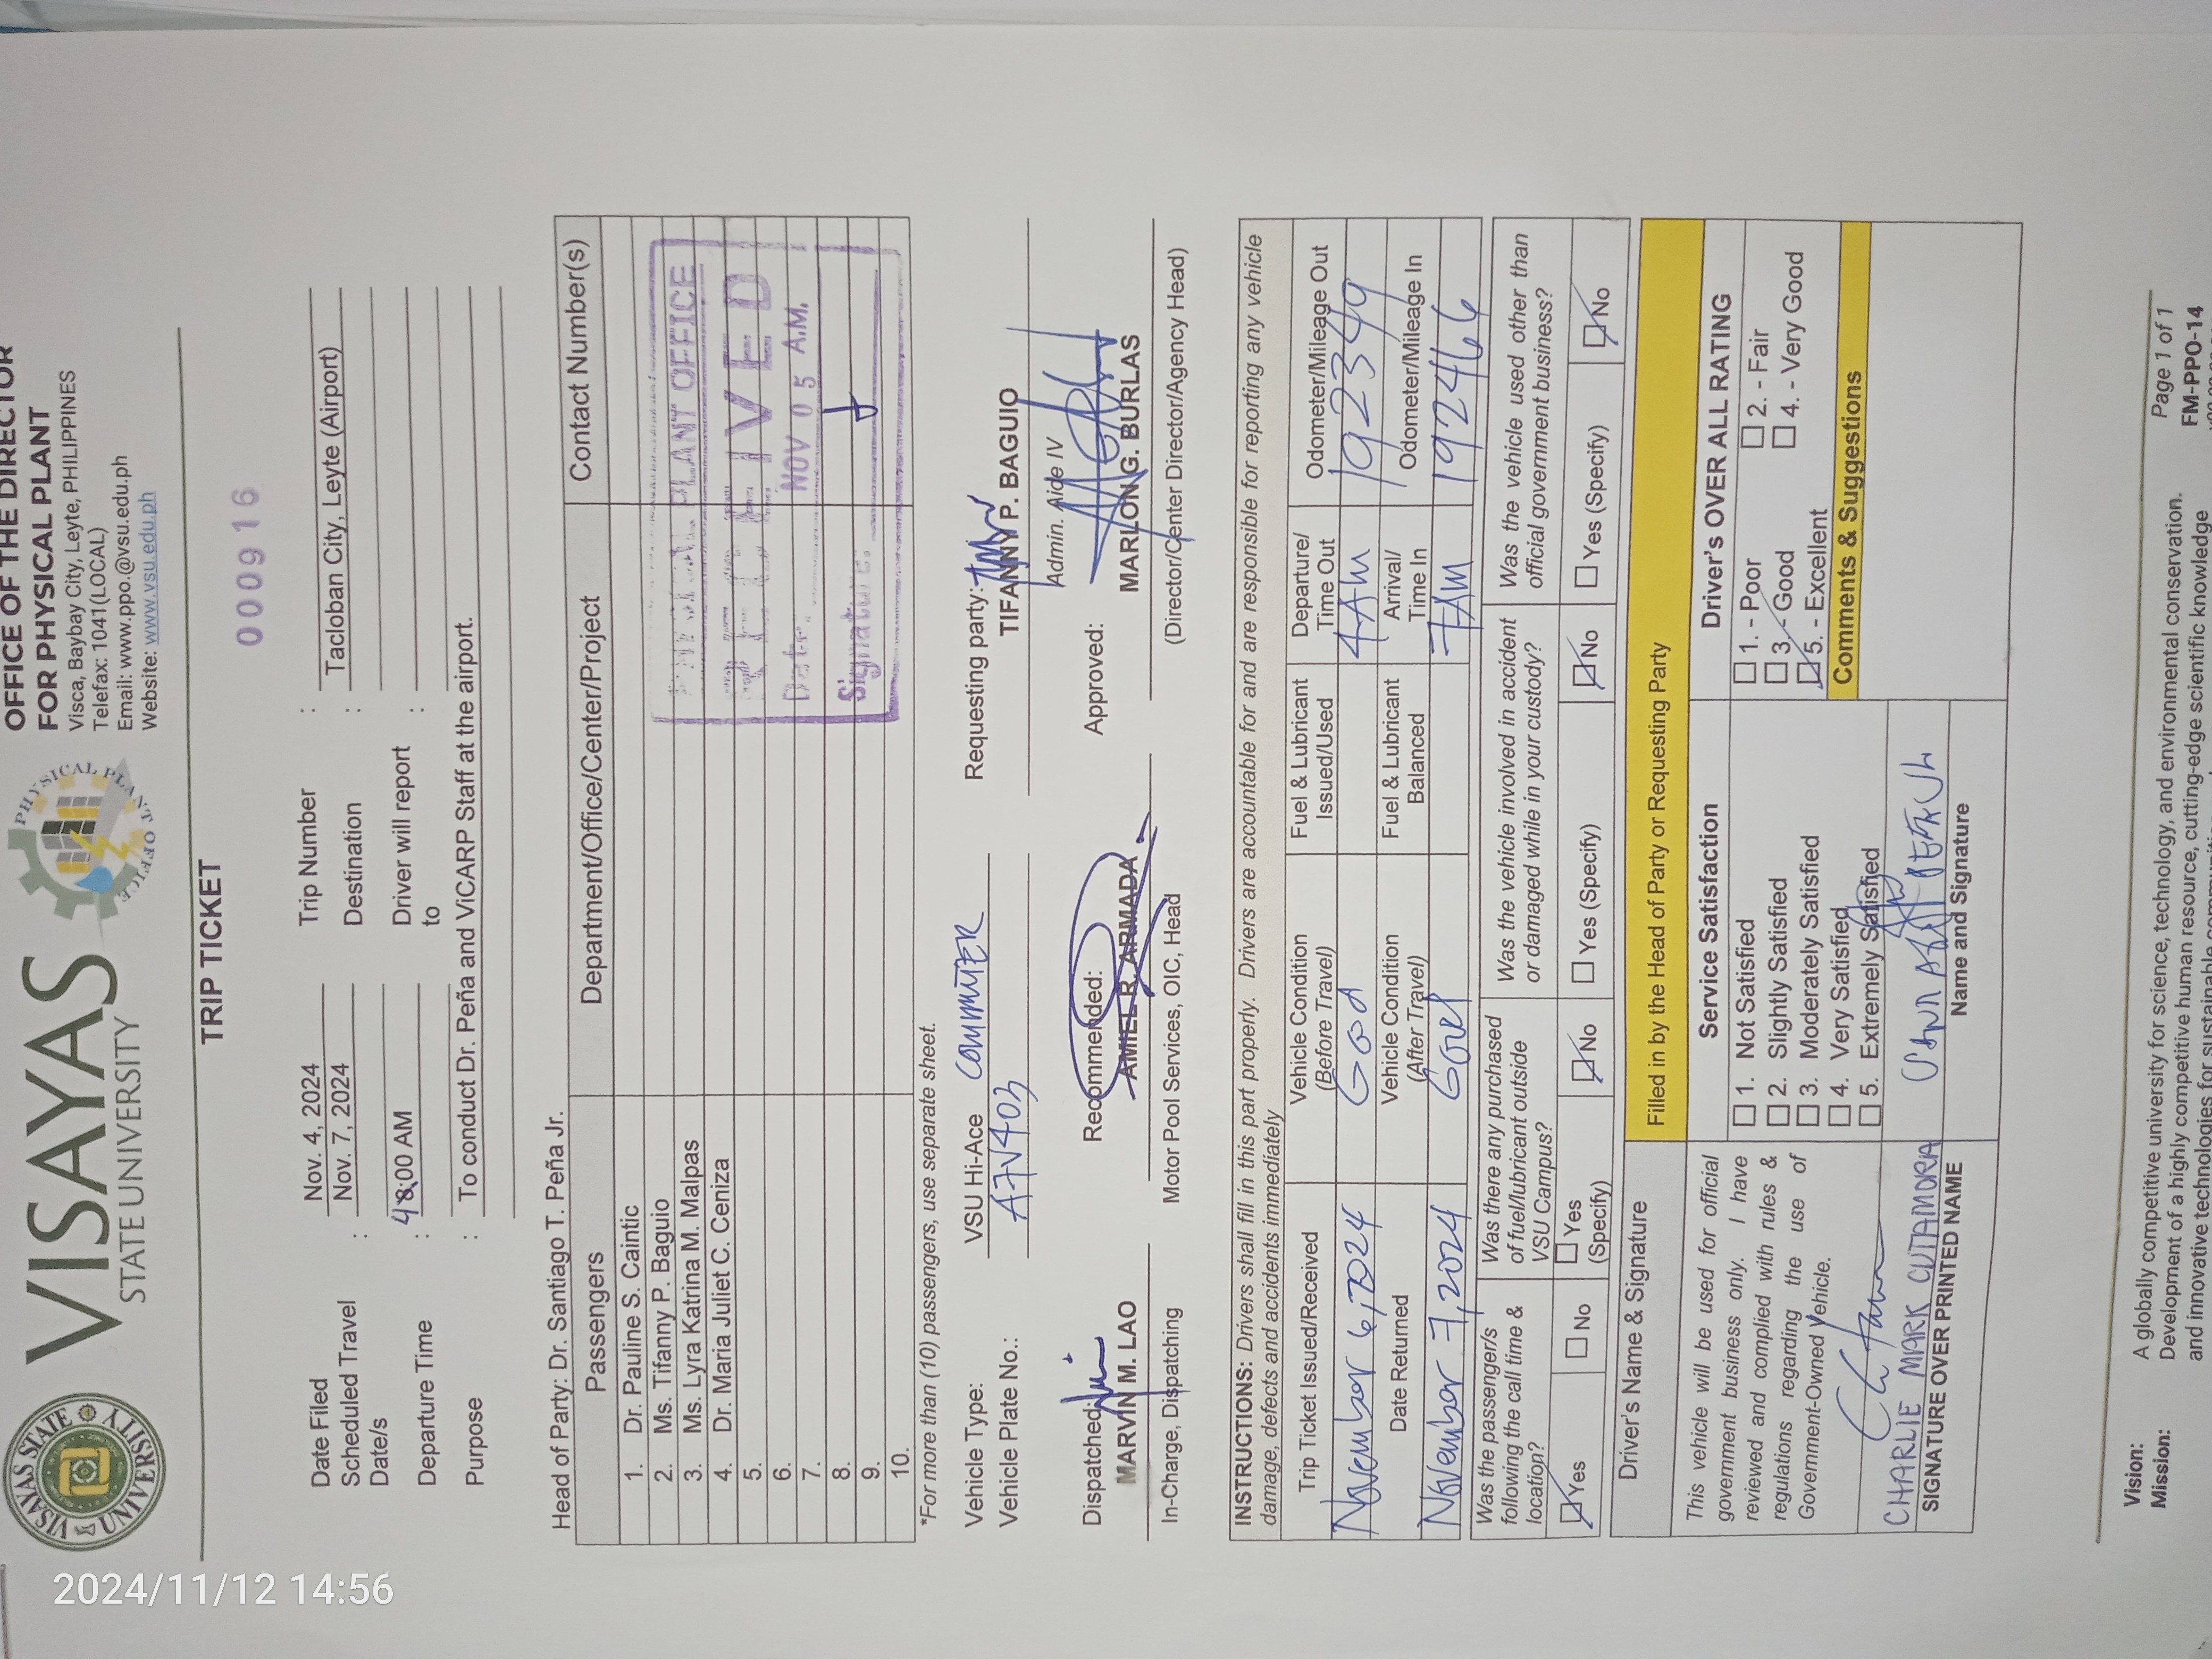 VISAYAS STATE UNIVERSITY
VISAYAS
STATE UNIVERSITY
PHYSICAL PLANT OFFICE
OFFICE OF THE DIRECTOR
FOR PHYSICAL PLANT
Visca, Baybay City, Leyte, PHILIPPINES
Telefax: 1041(LOCAL)
Email: www.ppo.@vsu.edu.ph
Website: www.vsu.edu.ph
TRIP TICKET
000916
Date Filed : Nov. 4, 2024 Trip Number :
Scheduled Travel Date/s : Nov. 7, 2024 Destination : Tacloban City, Leyte (Airport)
Departure Time : 48:00 AM Driver will report to :
Purpose : To conduct Dr. Peña and ViCARP Staff at the airport.
Head of Party: Dr. Santiago T. Peña Jr.
Passengers Department/Office/Center/Project Contact Number(s)
1. Dr. Pauline S. Caintic
2. Ms. Tifanny P. Baguio
3. Ms. Lyra Katrina M. Malpas
4. Dr. Maria Juliet C. Ceniza
5.
6.
7.
8.
9.
10.
PLANT OFFICE
NOV 05 A.M.
Signature:
*For more than (10) passengers, use separate sheet.
Vehicle Type: VSU Hi-Ace COMMUTER Requesting party:
Vehicle Plate No.: A7V403 TIFANNY P. BAGUIO
Admin. Aide IV
Dispatched: Recommended: Approved:
MARVIN M. LAO AMIEL R. ARMADA MARLON G. BURLAS
In-Charge, Dispatching Motor Pool Services, OIC, Head (Director/Center Director/Agency Head)
INSTRUCTIONS: Drivers shall fill in this part properly. Drivers are accountable for and are responsible for reporting any vehicle
damage, defects and accidents immediately
Trip Ticket Issued/Received Vehicle Condition (Before Travel) Fuel & Lubricant Issued/Used Departure/ Time Out Odometer/Mileage Out
November 6, 2024 Good 4 AM 192349
Date Returned Vehicle Condition (After Travel) Fuel & Lubricant Balanced Arrival/ Time In Odometer/Mileage In
November 7, 2024 Good 7 AM 192466
Was the passenger/s following the call time & location? Was there any purchased of fuel/lubricant outside VSU Campus? Was the vehicle involved in accident or damaged while in your custody? Was the vehicle used other than official government business?
Yes No Yes (Specify) No Yes (Specify) No Yes (Specify) No
Driver's Name & Signature
Filled in by the Head of Party or Requesting Party
This vehicle will be used for official
government business only. I have
reviewed and complied with rules &
regulations regarding the use of
Government-Owned Vehicle.
CHARLIE MARK CUTAMORA
SIGNATURE OVER PRINTED NAME
Service Satisfaction
1. Not Satisfied
2. Slightly Satisfied
3. Moderately Satisfied
4. Very Satisfied
5. Extremely Satisfied
Name and Signature
Driver's OVER ALL RATING
1. - Poor 2. - Fair
3. - Good 4. - Very Good
5. - Excellent
Comments & Suggestions
Vision: A globally competitive university for science, technology, and environmental conservation.
Mission: Development of a highly competitive human resource, cutting-edge scientific knowledge
and innovative technologies for sustainable
Page 1 of 1
FM-PPO-14
2024/11/12 14:56